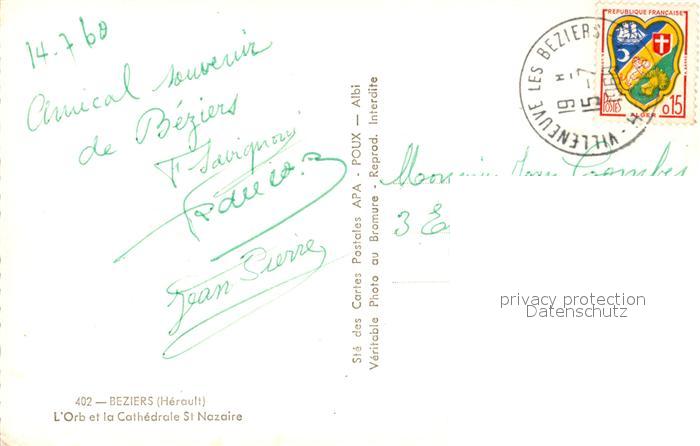 14-7 60
Amical souvenir
de Béziers
Jean Pierre
402 — BEZIERS (Hérault)
L'Orb et la Cathédrale St Nazaire
Sté des Cartes Postales APA - POUX — Albi
Véritable Photo au Bromure - Reprod. Interdite
VILLENEUVE LES BEZIERS
19 H
15-7
REPUBLIQUE FRANÇAISE
POSTES
0,15
ALGER
Monsieur
3 E
privacy protection
Datenschutz